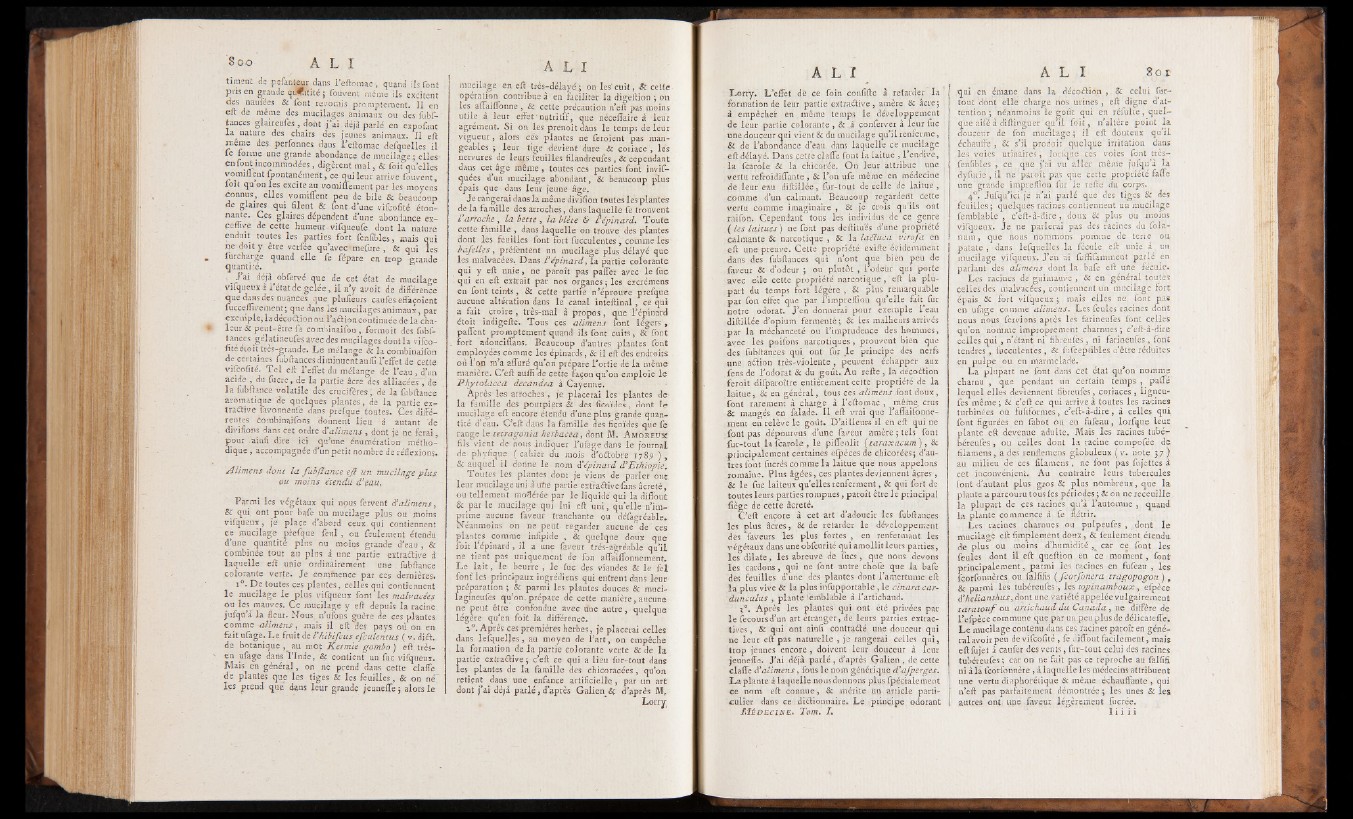 800 A L I
timent de pesanteur dans l'estomac, quand ils sont
pris en grande quantité ; souvent même ils excitent
des nausées & sont revomis promptement. Il en
est de même des mucilages animaux ou des subs-
tances glaireuses, dont j'ai déjà parlé en exposant
la nature des chairs des jeunes animaux. Il est
même des personnes dans l'estomac desquelles il
se forme une grande abondance de mucilage ; elles
en sont incommodées, digèrent mal, & soit qu'elles
vomissent spontanément, ce qui leur arrive souvent,
soit qu'on les excite au vomissement par les moyens
connus, elles vomissent peu de bile & beaucoup
de glaires qui filent & sont d'une viscosité éton-
nante. Ces glaires dépendent d'une abondance ex-
cessive de cette humeur visqueuse dont la nature
enduit toutes les parties fort sensibles, mais qui
ne doit y être versée qu'avec mesure, & qui les
surcharge quand elle se sépare en trop grande
quantité.
J'ai déjà observé que de cet état de mucilage
visqueux à l'état de gelée, il n'y avoit de différence
que dans des nuances que plusieurs causes effaçoient
successivement ; que dans les mucilages animaux, par
exemple, la décoction ou l'action continuée de la cha-
leur & peut-être sa combinaison, formoit des subs-
tances gélatineuses avec des mucilages dont la visco-
sité étoit très-grande. Le mélange & la combinaison
de certaines substances diminuent aussi l'effet de cette
viscosité. Tel est l'effet du mélange de l'eau, d'un
acide, du sucre, de la partie âcre des alliacées, de
la substance volatile des crucifères, de la substance
aromatique de quelques plantes, de la partie ex-
tractive savonneuse dans presque toutes. Ces diffé-
rentes combinaisons donnent lieu à autant de
divisions dans cet ordre d'alimens, dont je ne ferai,
pour ainsi dire ici qu'une énumération métho-
dique, accompagnée d'un petit nombre de réflexions.
Alimens dont la substance est un mucilage plus
ou moins étendu d'eau.
Parmi les végétaux qui nous servent d'alimens,
& qui ont pour base un mucilage plus ou moins
visqueux, je place d'abord ceux qui contiennent
ce mucilage presque seul, ou seulement étendu
d'une quantité plus ou moins grande d'eau, &
combinée tout au plus à une partie extractive à
laquelle est unie ordinairement une substance
colorante verte. Je commence par ces dernières.
1°. De toutes ces plantes, celles qui contiennent
le mucilage le plus visqueux sont les malvacées
ou les mauves. Ce mucilage y est depuis la racine
jusqu'à la fleur. Nous n'usons guère de ces plantes
comme alimens, mais il est des pays où on en
fait usage. Le fruit de l'hibiscus esculentus ( v. dict.
de botanique, au mot Ketmie gombo ) est très-
en usage dans l'Inde, & contient un suc visqueux.
Mais en général, on ne prend dans cette classe
de plantes que les tiges & les feuilles, & on ne
les prend que dans leur grande jeunesse ; alors le
A L I
mucilage en est très-délayé ; on les cuit, & cette
opération contribue à en faciliter la digestion ; on
les assaisonne, & cette précaution n'est pas moins
utile à leur effet nutritif, que nécessaire à leur
agrément. Si on les prenoit dans le temps de leur
vigueur, alors ces plantes ne seroient pas man-
geables ; leur tige devient dure & coriace, les
nervures de leurs feuilles filandreuses, & cependant
dans cet âge même, toutes ces parties sont invis-
quées d'un mucilage abondant, & beaucoup plus
épais que dans leur jeune âge.
Je rangerai dans la même division toutes les plantes
de la famille des arroches, dans laquelle se trouvent
l'arroche, la bette, la blète & l'épinard. Toute
cette famille, dans laquelle on trouve des plantes
dont les feuilles sont fort succulentes, comme les
baselles, présentent un mucilage plus délayé que
les malvacées. Dans l'épinard, la partie colorante
qui y est unie, ne paroît pas passer avec le suc
qui en est extrait par nos organes ; les excrémens
en sont teints, & cette partie n'éprouve presque
aucune altération dans le canal intestinal, ce qui
a fait croire, très-mal à propos, que l'épinard
étoit indigeste. Tous ces alimens sont légers,
passent promptement quand ils sont cuits, & sont
fort adoucissans. Beaucoup d'autres plantes sont
employées comme les épinards, & il est des endroits
où l'on m'a assuré qu'on prépare l'ortie de la même
manière. C'est aussi de cette façon qu'on emploie le
Phytolacca decandra à Cayenne.
Après les arroches, je placerai les plantes de
la famille des pourpiers & des ficoïdes, dont le
mucilage est encore étendu d'une plus grande quan-
tité d'eau. C'est dans la famille des ficoïdes que se
range le tetragonia herbacea, dont M. AMOREUX
fils vient de nous indiquer l'usage dans le journal
de physique ( cahier du mois d'octobre 1789 ),
& auquel il donne le nom d'épinard d'Ethiopie.
Toutes les plantes dont je viens de parler ont
leur mucilage uni à une partie extractive sans âcreté,
ou tellement modérée par le liquide qui la dissout
& par le mucilage qui lui est uni, qu'elle n'im-
prime aucune saveur tranchante ou désagréable.
Néanmoins on ne peut regarder aucune de ces
plantes comme insipide, & quelque doux que
soit l'épinard, il a une saveur très-agréable qu'il
ne tient pas uniquement de son assaisonnement.
Le lait, le beurre, le suc des viandes & le sel
sont les principaux ingrédiens qui entrent dans leur
préparation ; & parmi les plantes douces & muci-
lagineuses qu'on prépare de cette manière, aucune
ne peut être confondue avec une autre, quelque
légère qu'en soit la différence.
2°. Après ces premières herbes, je placerai celles
dans lesquelles, au moyen de l'art, on empêche
la formation de la partie colorante verte & de la
partie extractive ; c'est ce qui a lieu sur-tout dans
les plantes de la famille des chicoracées, qu'on
retient dans une enfance artificielle, par un art
dont j'ai déjà parlé, d'après Galien & d'après M.
Lorry.
A L I
Lorry. L'effet de ce soin consiste à retarder la
formation de leur partie extractive, amère & âcre ;
à empêcher en même temps le développement
de leur partie colorante, & à conserver à leur suc
une douceur qui vient & du mucilage qu'il renferme,
& de l'abondance d'eau dans laquelle ce mucilage
est délayé. Dans cette classe sont la laitue, l'endive,
la scarole & la chicorée. On leur attribue une
vertu refroidissante, & l'on use même en médecine
de leur eau distillée, sur-tout de celle de laitue,
comme d'un calmant. Beaucoup regardent cette
vertu comme imaginaire, & je crois qu'ils ont
raison. Cependant tous les individus de ce genre
( les laitues ) ne sont pas destitués d'une propriété
calmante & narcotique, & la lactuca virosa en
est une preuve. Cette propriété existe évidemment
dans des substances qui n'ont que bien peu de
saveur & d'odeur ; ou plutôt, l'odeur qui porte
avec elle cette propriété narcotique, est la plu-
part du temps fort légère, & plus remarquable
par son effet que par l'impression qu'elle fait sur
notre odorat. J'en donnerai pour exemple l'eau
distillée d'opium fermenté ; & les malheurs arrivés
par la méchanceté ou l'imprudence des hommes,
avec les poisons narcotiques, prouvent bien que
des substances qui ont sur le principe des nerfs
une action très-violente, peuvent échapper aux
sens de l'odorat & du goût. Au reste, la décoction
feroit disparoître entièrement cette propriété de la
laitue, & en général, tous ces alimens sont doux,
sont rarement à charge à l'estomac, même crus
& mangés en salade. Il est vrai que l'assaisonne-
ment en relève le goût. D'ailleurs il en est qui ne
sont pas dépourvus d'une saveur amère ; tels sont
sur-tout la scarole, le pissenlit ( taraxacum ), &
principalement certaines espèces de chicorées ; d'au-
tres sont sucrés comme la laitue que nous appelons
romaine. Plus âgées, ces plantes deviennent âcres,
& le suc laiteux qu'elles renferment, & qui sort de
toutes leurs parties rompues, paroît être le principal
siége de cette âcreté.
C'est encore à cet art d'adoucir les substances
les plus âcres, & de retarder le développement
des saveurs les plus fortes, en renfermant les
végétaux dans une obscurité qui amollit leurs parties,
les dilate, les abreuve de sucs, que nous devons
les cardons, qui ne sont autre chose que la base
des feuilles d'une des plantes dont l'amertume est
la plus vive & la plus insupportable, le cinara car-
dunculus, plante semblable à l'artichaud.
3°. Après les plantes qui ont été privées par
le secours d'un art étranger, de leurs parties extrac-
tives, & qui ont ainsi contracté une douceur qui
ne leur est pas naturelle, je rangerai celles qui,
trop jeunes encore, doivent leur douceur à leur
jeunesse. J'ai déjà parlé, d'après Galien, de cette
classe d'alimens, sous le nom générique d'asperges.
La plante à laquelle nous donnons plus spécialement
ce nom est connue, & mérite un article parti-
culier dans ce dictionnaire. Le principe odorant
MÉDECINE. Tom. I.
A L I 801
qui en émane dans la décoction, & celui sur-
tout dont elle charge nos urines, est digne d'at-
tention ; néanmoins le goût qui en résulte, quel-
que aisé à distinguer qu'il soit, n'altère point la
douceur de son mucilage ; il est douteux qu'il
échauffe, & s'il produit quelque irritation dans
les voies urinaires, lorsque ces voies sont très-
sensibles, ce que j'ai vu aller même jusqu'à la
dysurie, il ne paroît pas que cette propriété fasse
une grande impression sur le reste du corps.
4°. Jusqu'ici je n'ai parlé que des tiges & des
feuilles ; quelques racines contiennent un mucilage
semblable, c'est-à-dire, doux & plus ou moins
visqueux. Je ne parlerai pas des racines du sola-
num, que nous nommons pomme de terre ou
patate, dans lesquelles la fécule est unie à un
mucilage visqueux. J'en ai suffisamment parlé en
parlant des alimens dont la base est une fécule.
Les racines de guimauve, & en général toutes
celles des malvacées, contiennent un mucilage fort
épais & fort visqueux ; mais elles ne sont pas
en usage comme alimens. Les seules racines dont
nous nous servions après les farineuses sont celles
qu'on nomme improprement charnues ; c'est-à-dire
celles qui, n'étant ni fibreuses, ni farineuses, sont
tendres, succulentes, & susceptibles d'être réduites
en pulpe ou en marmelade.
La plupart ne sont dans cet état qu'on nomme
charnu, que pendant un certain temps, passé
lequel elles deviennent fibreuses, coriaces, ligneu-
ses même ; & c'est ce qui arrive à toutes les racines
turbinées ou fusiformes, c'est-à-dire, à celles qui
sont figurées en sabot ou en fuseau, lorsque leur
plante est devenue adulte. Mais les racines tubé-
bereuses, ou celles dont la racine composée de
filamens, a des renflemens globuleux ( v. note 37 )
au milieu de ces filamens, ne sont pas sujettes à
cet inconvénient. Au contraire leurs tubercules
sont d'autant plus gros & plus nombreux, que la
plante a parcouru tous ses périodes ; & on ne recueille
la plupart de ces racines qu'à l'automne, quand
la plante commence à se flétrir.
Les racines charnues ou pulpeuses, dont le
mucilage est simplement doux, & seulement étendu
de plus ou moins d'humidité, car ce sont les
seules dont il est question en ce moment, sont
principalement, parmi les racines en fuseau, les
scorsonnères ou salsifis ( scorsonera tragopogon ),
& parmi les tubéreuses, les topinambous, espèce
d'helianthus, dont une variété appelée vulgairement
taratouf ou artichaud du Canada, ne diffère de
l'espèce commune que par un peu plus de délicatesse.
Le mucilage contenu dans ces racines paroît en géné-
ral avoir peu de viscosité, se dissout facilement, mais
est sujet à causer des vents, sur-tout celui des racines
tubéreuses ; car on ne fait pas ce reproche au salsifi
ni à la scorsonnère, à laquelle les médecins attribuent
une vertu diaphorétique & même échauffante, qui
n'est pas parfaitement démontrée ; les unes & les
autres ont une saveur légèrement sucrée.
I i i i i